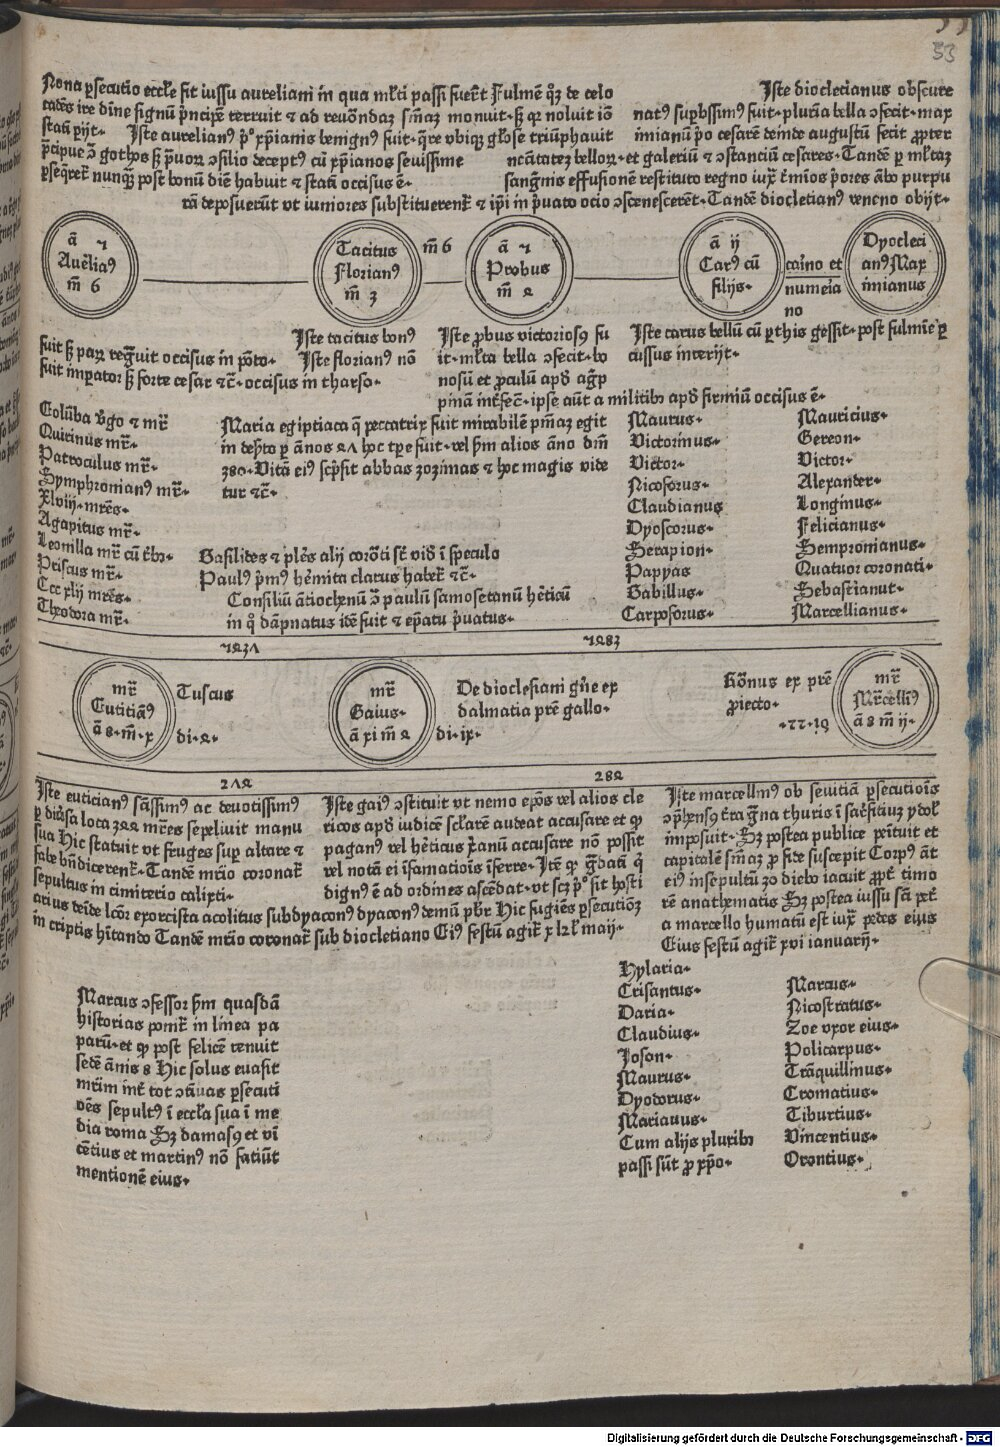 53
Nona ꝑsecutio eccl̄e fit iussu aureliani in qua ml̄ti passi fuer̄t Fulmē qꝫ de celo
cadēs ire diuīe signū pͥncipē terruit ⁊ ad reuō̄ndaꝫ sīnaꝫ monuit· sꝫ qꝛ noluit iō
statī pīt· Iste aurelianꝰ pͦ xp̄ianis benignꝰ fuit· qͣre vbiqꝫ gl̄ose triūphauit
pͥcipue ꝯ̄ gothos sꝫ pͣuoꝝ ꝯsilio deceptꝰ cū xp̄ianos seuissime
ꝑseqͥrer̄ nunqꝫ post bonū diē habuit ⁊ statī occisus ē·
Iste dioclecianus obscure
natꝰ supbissimꝰ fuit· plurīa bella ꝯfecit· max
imianū pͦo cesarē deinde augustū fecit ꝓpter
ncītatez belloꝝ· et galeriū ⁊ ꝯstanciū cesares· Tandē p ml̄taꝫ
sanguis effusionē restituto regno iuxͣ tīmīos pͥores ābo purpu
rā deposuerūt vt iuniores substituerenꝉ ⁊ ip̄i in pͥuato ocio ꝯscenescerēt· Tandē diocletianꝰ veneno obijt·
ā ⁊
Aurēliaꝰ
m̄ 6
Tacitus
Florianꝰ
m̄ 3
m̄ 6
ā ⁊
Probus
m̄ 2
ā ij
Carꝰ cū
filijs·
carino et
numeīa
no
Dyocleci
anꝰ Max
imianus
Iste tacitus bonꝰ
fuit sꝫ paꝝ regͣuit occisus in pōto· Iste florianꝰ nō
fuit imꝑator sꝫ forte cesar ⁊c̄· occisus in tharso·
Iste ꝓbus victoriosꝰ fu
it· ml̄ta bella ꝯfecit· bo
nosū et ꝓculū apd̄ agͥp
pinā int̄fēc̄· ipse aūt a militibꝰ apd̄ firmiū occisus ē·
Iste carus bellū cū ꝑthis gessit· post fulmīe ꝑ
cussus interijt·
Colūba vͥgo ⁊ mr̄
Quirinus mr̄·
Patroculus mr̄·
Symphronianꝰ mr̄·
Xlviij· mr̄es·
Agapitus mr̄·
Leonilla mr̄ cū t̄bꝫ·
Priscus mr̄·
Ccc xlij mr̄es·
Theodora mr̄·
Maria egiptiaca qͥ peccatrix fuit mirabilē pīnaꝫ egit
in deͬto ꝑ ānos 47 hoc tꝑe fuit· vel ẜm alios āno dn̄i
380· Vitā eiꝰ scͥpsit abbas zozimas ⁊ hoc magis vide
tur ⁊c̄·
Basilides ⁊ pl̄es alij corōti sēt vid̄ ī speculo
Paulꝰ pͥmꝰ heͬmita clarus habet̄ ⁊c̄·
Consiliū ātiochenū ꝯ̄ paulū samosetanū heͬticū
in qͦ dāpnatus idē fuit ⁊ ep̄atu pͥuatus·
Maurus·
Victorinus·
Victor·
Nicoforus·
Claudianus
Dyoscorus·
Serapion·
Papyas
Babillus·
Carpoforus·
Mauricius·
Gereon·
Victor·
Alexander·
Longinus·
Felicianus·
Sempronianus·
Quatuor coronati·
Sebastianut·
Marcellianus·
mr̄
Eutitiāꝰ
ā 8· m̄· x
Tuscus
di·2·
mr̄
Gaius·
ā xi m̄ 2
De dioclesiani gn̄e ex
dalmatia prē gallo·
di·ix·
Rōnus ex prē
ꝓiecto·
mr̄
Mr̄celliꝰ
ā 8 m̄ ij·
282
Iste euticianꝰ sāssimꝰ ac deuotissimꝰ
ꝑ diūsa loca 342 mr̄es sepeliuit manu
sua Hic statuit vt fruges suꝑ altare ⁊
fabe bn̄dicerenꝉ· Tandē mr̄io coronaꝉ
sepultus in cimiterio calixti·
Iste gaiꝰ ꝯstituit vt nemo ep̄os vel alios cle
ricos apd̄ iudicē sclārē audeat accusare et qͥ
paganꝰ vel hēticus xr̄anū accusare nō possit
vel notā ei īfamatiois īferre· Itē qͥ gͣdatī qͥ
dignꝰ ē ad ordines ascēdat· vt scꝫ pͦ sit hosti
arius deīde lc̄or exorcista acolitus subdyaconꝰ dyaconꝰ demū pb̄r Hic fugiēs ꝑsecutiōꝫ
in criptis hītando Tandē mr̄io coronaꝉ sub diocletiano Eiꝰ festū agiꝉ x kl̄ maij·
Iste marcellinꝰ ob seuitiā ꝑsecutiois
ꝯpͥhēsꝰ t̄ra gͣna thuris ī sacͥfitiuꝫ ydoł
imposuit· Sꝫ postea publice peītuit et
capitalē sīnaꝫ ꝓ fide suscepit Corpꝰ āt
eiꝰ insepultū 30 diebꝰ iacuit ꝓpꝉ timo
rē anathematis Sꝫ postea iussu scī peꝉ
a marcello humatū est iuxͣ pedes eius
Eius festū agiꝉ xvi ianuarij·
Marcus ꝯfessor ẜm quasdā
historias poniꝉ in linea pa
parū· et qͥ post felicē tenuit
sedē ānis 8 Hic solus euasit
mr̄im int̄ tot ꝯtīuas ꝑsecuti
oēs sepultꝰ ī eccl̄a sua ī me
dia roma Sꝫ damasꝰ et vī
cētius et martinꝰ nō faciūt
mentionē eius·
Hylaria·
Crisantus·
Daria·
Claudius·
Joson·
Maurus·
Dyodorus·
Marianus·
Cum alijs pluribꝰ
passi sūt ꝓ xp̄o·
Marcus·
Nicostratus·
Zoe vxor eius·
Policarpus·
Trāquillinus·
Cromatius·
Tiburtius·
Vincentius·
Orontius·
Digitalisierung gefördert durch die Deutsche Forschungsgemeinschaft - DFG